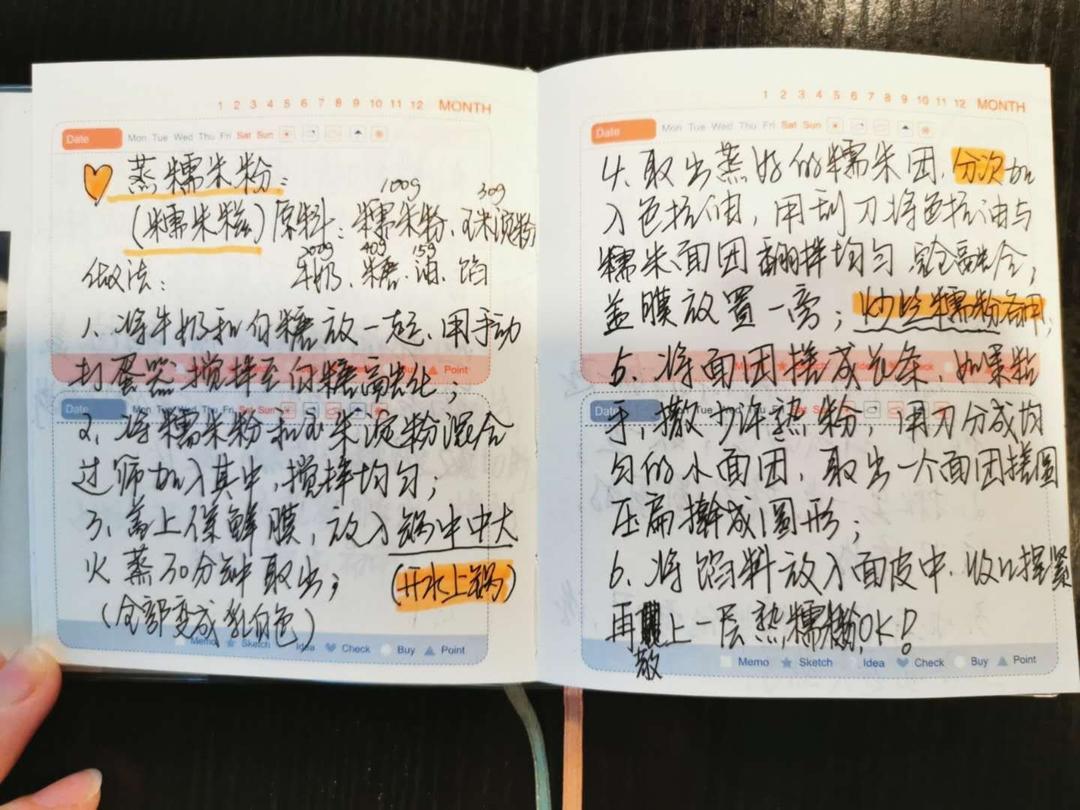 1 2 3 4 5 6 7 8 9 10 11 12 MONTH
Date Mon Tue Wed Thu Fri Sat Sun
蒸糯米粉:
100g 30g
(糯米糍)原料: 糯米粉、玉米淀粉
200g 40g 15g
做法: 牛奶、糖、油、馅
1、将牛奶和白糖放一起、用手动
打蛋器搅拌至白糖融化;
Point
Date Mon Tue Wed Thu Fri Sat Sun
2、将糯米粉和玉米淀粉混合
过筛加入其中,搅拌均匀;
3、盖上保鲜膜,放入锅中中大
火蒸30分钟取出; (开水上锅)
(全部变成乳白色)
Memo Sketch Idea Check Buy Point
1 2 3 4 5 6 7 8 9 10 11 12 MONTH
Date Mon Tue Wed Thu Fri Sat Sun
4、取出蒸好的糯米团,分次加
入色拉油,用刮刀将色拉油与
糯米面团翻拌均匀,完全融合,
盖膜放置一旁;炒些糯粉备用,
5、将面团搓成长条、如果粘
Date Tue Wed Thu Fri Sat Sun
手,撒少许熟粉,用刀分成均
匀的小面团,取出一个面团搓圆
压扁擀成圆形;
6、将馅料放入面皮中、收口捏紧
再上一层熟糯粉,OK!
Memo Sketch Idea Check Buy Point